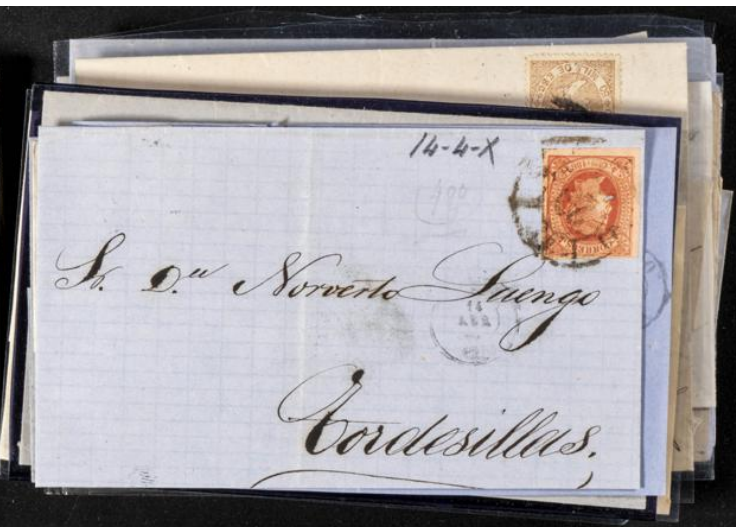 14-4-X
Sr. D.ⁿ Norverto Luengo
14
ABR
Tordesillas.